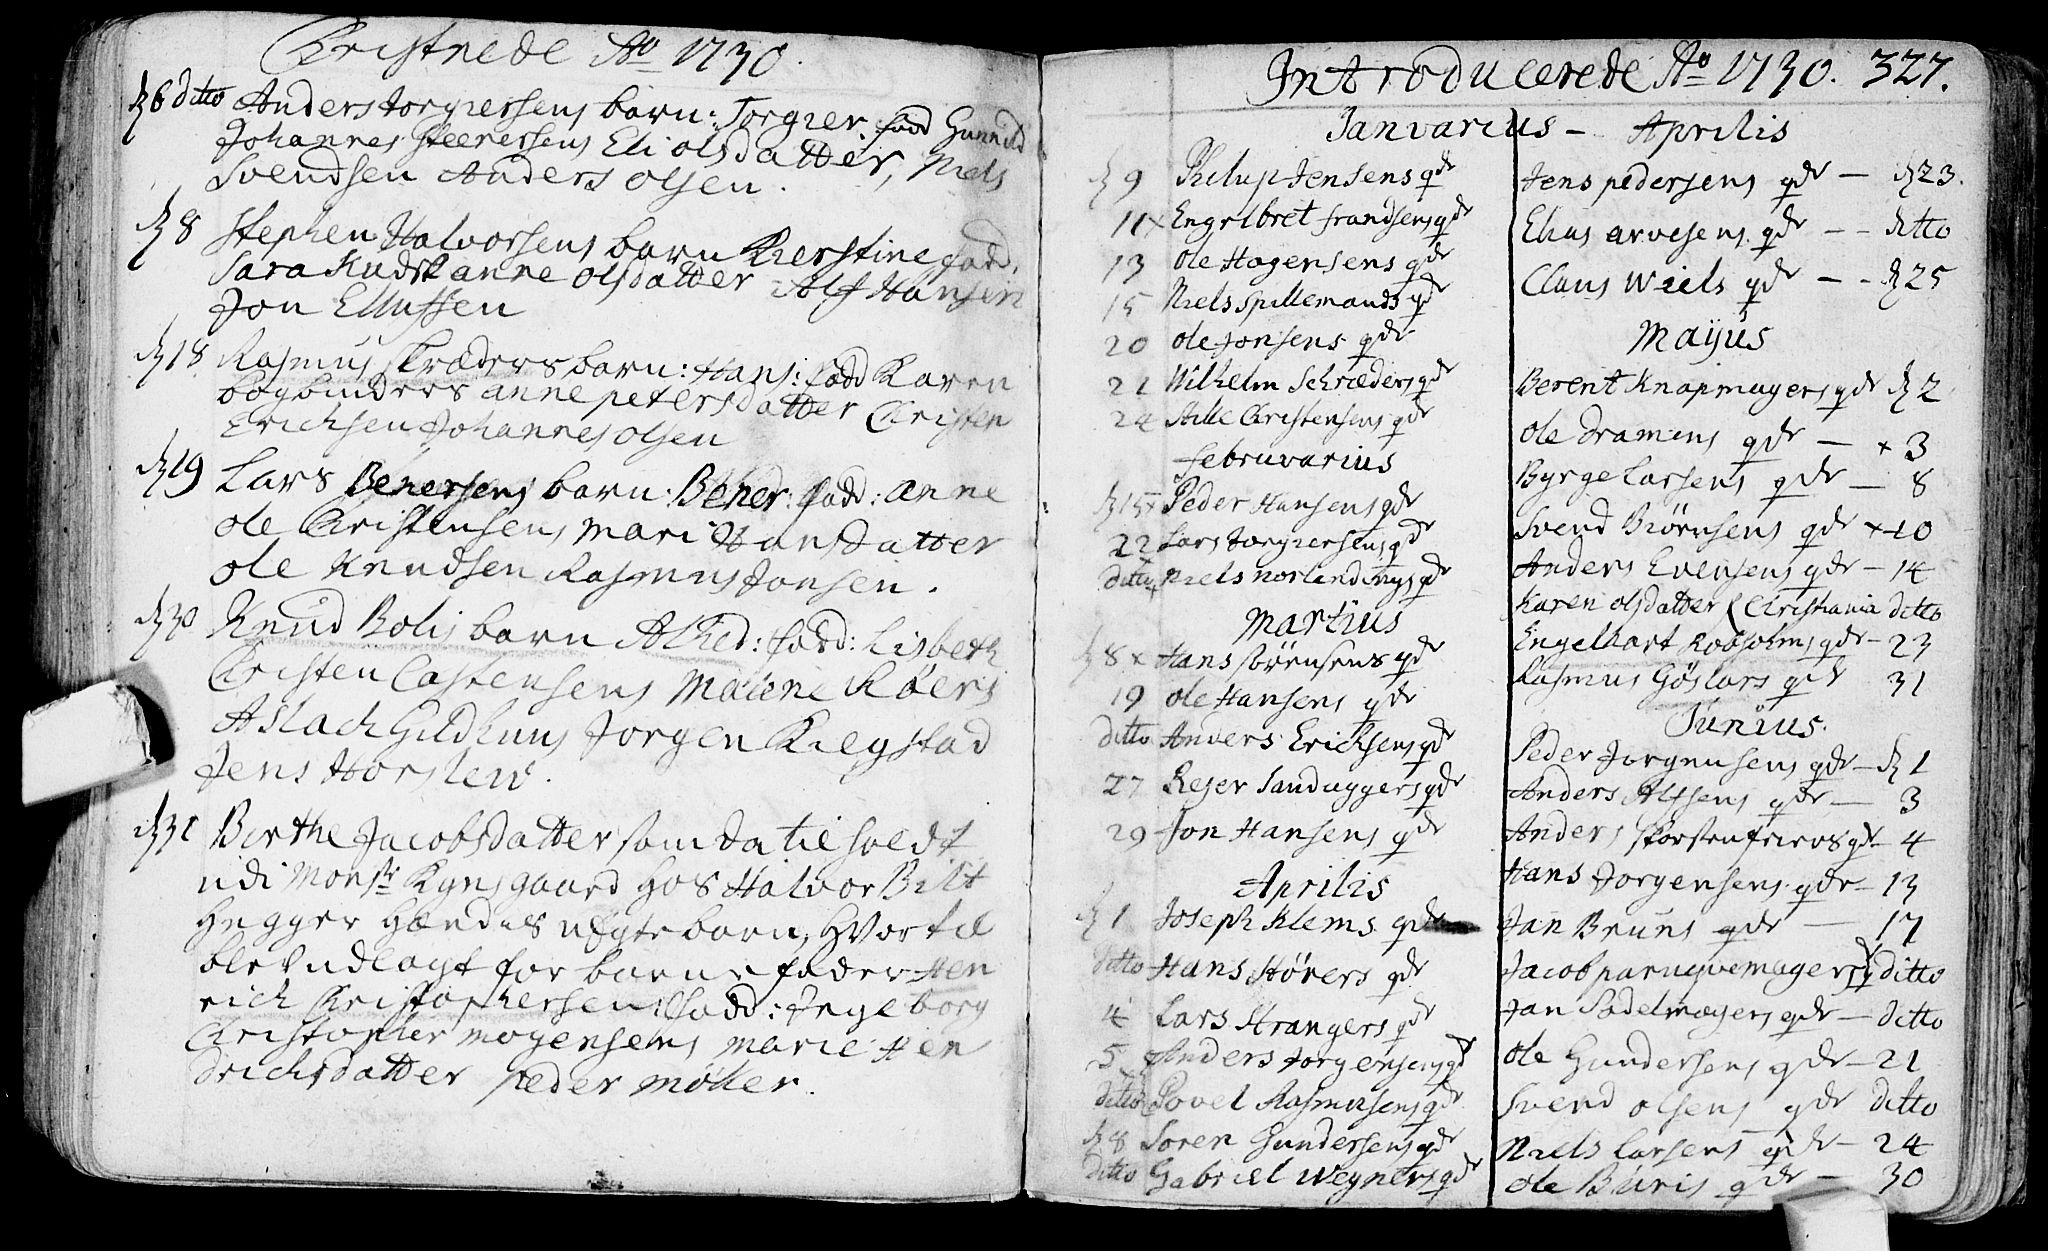 Christnede Ao 1730.
d 6 ditto Anders Jorgiersens barn: Torgier. fadd Gunnild
Johannes Steenersens Eli olsdatter, Niels
Svendsen Anders olsen.
d 8 Stephen Halvorsens barn Kierstine fadd.
Sara Kudsk anne olsdatter Alf Hansen
Jon Ellufsen
d 18 Rasmus Skræders barn: Hans: fadd Karen
bogbinders anne petersdatter Christen
Erichsen Johannes olsen
d 19 Lars Benersens barn: Bener: fadd: anne
ole Christensens Mari Hansdatter
ole Knudsen Rasmus Jonsen.
d 30 Knud Bolis barn Alhed: fadd: Lisbeth
Christen Castensens Malene Røers
Aslach Gildhuus Jorgen Kiegstad
Jens Horslew.
d 31 Birthe Jacobsdatter som da tilholdt
udi Monsr Kynsgaard hos Halvor Bilt
hugger hendes uegte barn, Hvortil
blev udlagt for barne fader Hen
rich Christophersen, fadd: Ingeborg
Christopher Mogensens Marie Hen
drichsdatter peder Møller.
Introducerede Ao 1730. 327.
Ianvarius –
d 9 Philup Jensens qde
11 x Engelbret frandsens qde
13 ole Hagensens qde
15 Niels Spillemands qde
20 ole Jonsens qde
21 Wilhelm Schræders qde
24 Atlle Christensens qde
februvarius
d 15 x Peder Hansens qde
22 Lars Jorgiersens qde
ditto x Niels Norlandings qde
Martius
d 8 x Hans Sörensens qde
19 ole Hansens qde
ditto Anders Ericksens qde
27 Rejer Sanduggers qde
29 Jon Hansens qde
Aprilis
d 1 Joseph Klems qde
ditto Hans Hövers qde
4 Lars Strangers qde
5 Anders Jorgensens qde
ditto Povel Rasmusens qde
d 8 Soren Gundersens qde
ditto Gabriel Wegners qde
Aprilis
Jens pedersens qde – d 23.
Elias arvesens qde – – ditto
Claus Wiels qde – – d 25
Maijus
Berent Knapmagers qde d 2
ole dramens qde – x 3
Byrge Larsens qde – 8
Svend Biörnsens qde x 10
Anders Evensens qde – 14
Karen olsdatter / Christiania ditto
Engelhart Robsolms qde – 23
Rasmus Göslars qde 31
Junius.
Peder Jorgensens qde – d 1
Anders Alfsens qde – 3
Anders Skorstenfeiers qde 4
Hans Jorgensens qde – 13
Jan Bruns qde – 17
Jacob paruqvemagers qde ditto
Jan Sadelmagers qde – ditto
ole Gundersens qde – 21
Svend olsens qde ditto
Niels Larsens qde – 24
ole Buris qde – 30